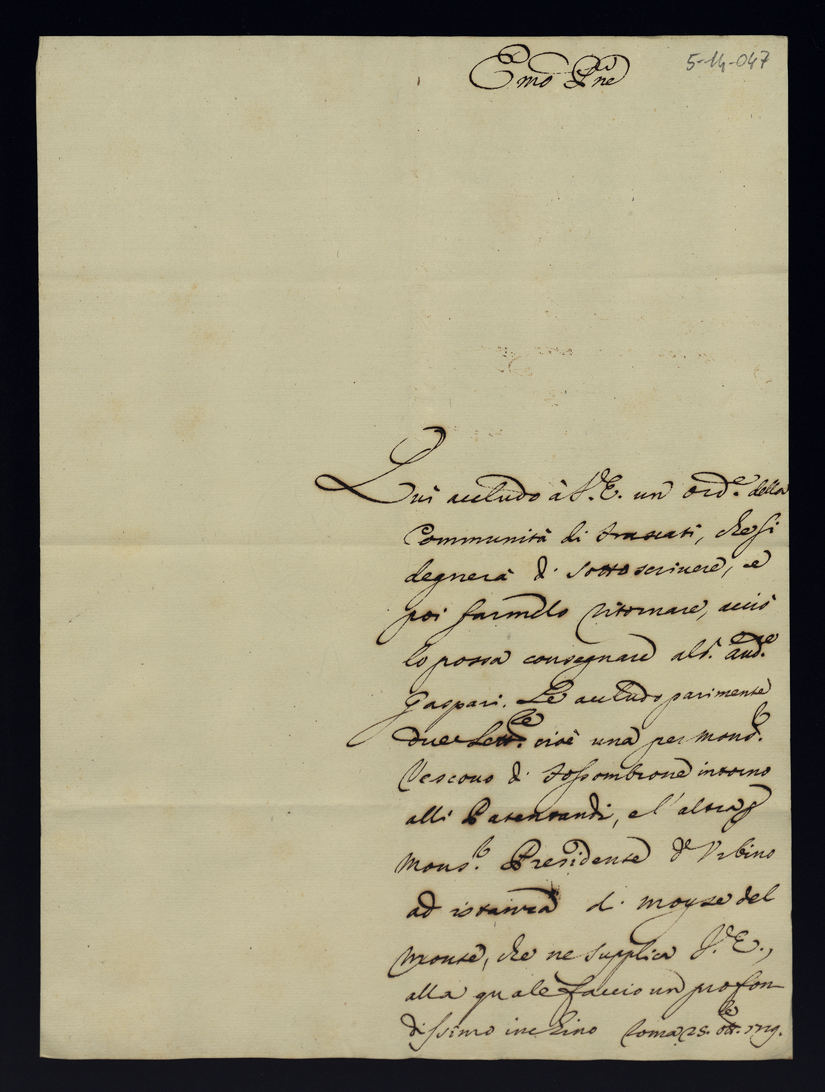 Emo Pne
5-14-047
Qui accludo à V.E. un ord.e della
Communità di Frascati, che si
degnerà di sottoscrivere, e
poi farmelo ritornare, acciò
lo possa consegnare al S.r Aud.e
Gaspari. Le accludo parimente
due Lett.re cioè una per Mons.r
Vescovo di Fossombrone intorno
alli Patentandi, e l'altra p
Mons.r Presidente d'Urbino
ad istanza di Moyse del
Monte, che ne supplica V.E.,
alla quale faccio un profon
dissimo inchino Roma 25. ott.bre